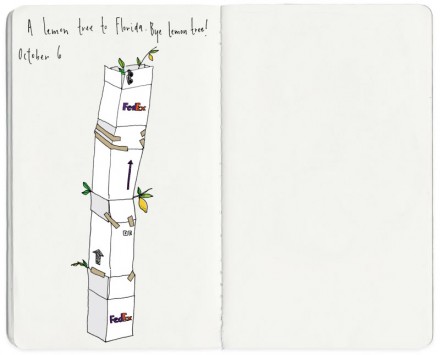 A lemon tree to Florida. Bye lemon tree!
October 6
FedEx
FedEx